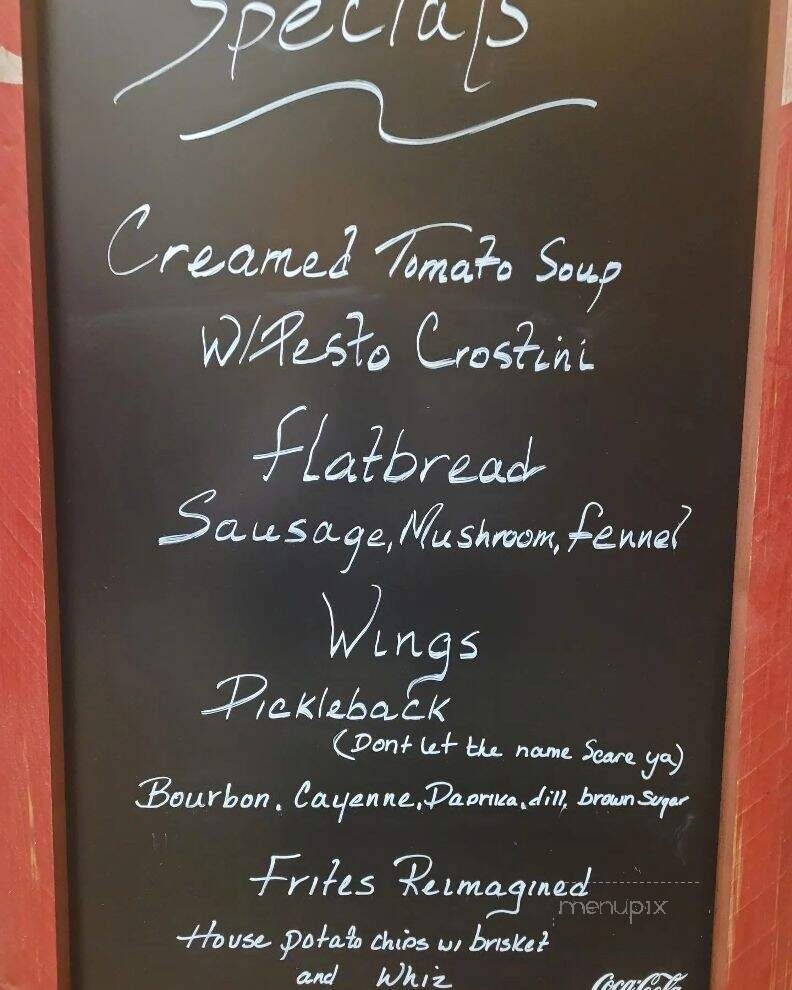 Specials
Creamed Tomato Soup
W/Pesto Crostini
Flatbread
Sausage, Mushroom, Fennel
Wings
Pickleback
(Dont let the name Scare ya)
Bourbon, Cayenne, Paprika, dill, brown Sugar
Frites Reimagined
menupix
House potato chips w/ brisket
and Whiz
Coca-Cola